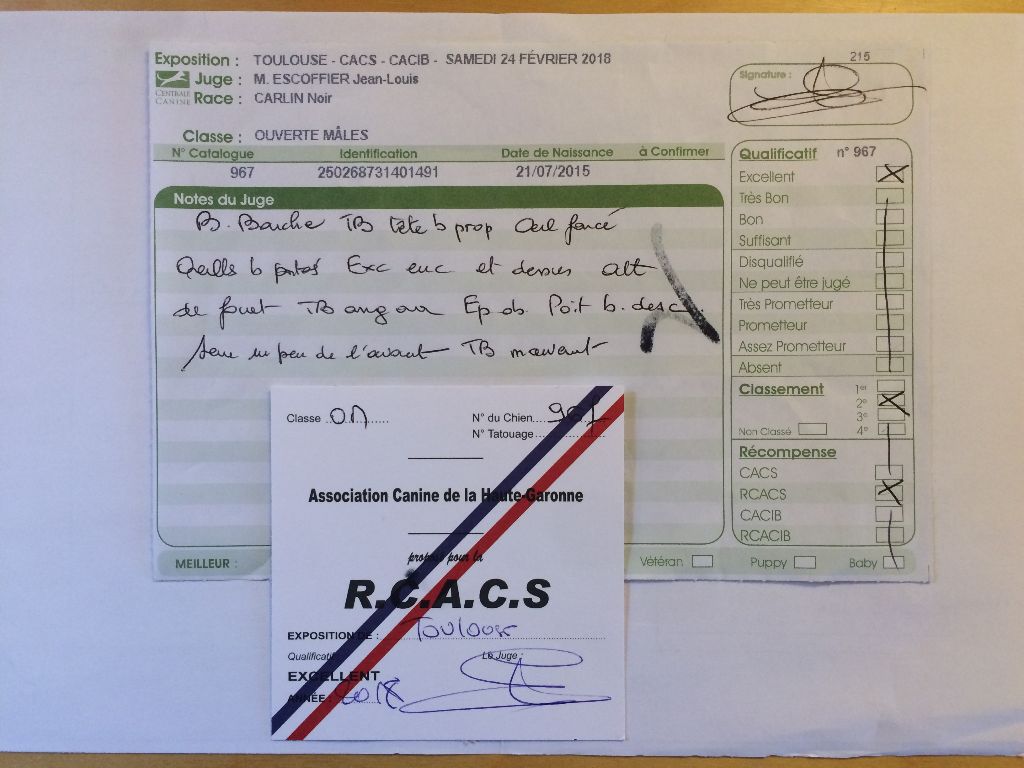 Exposition : TOULOUSE - CACS - CACIB - SAMEDI 24 FÉVRIER 2018
CENTRALE CANINE
Juge : M. ESCOFFIER Jean-Louis
Race : CARLIN Noir
Classe : OUVERTE MÂLES
215
Signature :
N° Catalogue Identification Date de Naissance à Confirmer
967 250268731401491 21/07/2015
Qualificatif n° 967
Excellent
Très Bon
Bon
Suffisant
Disqualifié
Ne peut être jugé
Très Prometteur
Prometteur
Assez Prometteur
Absent
Classement 1er
2e
3e
Non Classé 4e
Récompense
CACS
RCACS
CACIB
RCACIB
Notes du Juge
B. Bouche TB tête b prop Oeil foncé
b portés Exc enc et dessus att
de fouet TB ang av Ep ob. Poit b. desc.
un peu de l'avant TB mouvant
MEILLEUR :
Vétéran Puppy Baby
Classe OM N° du Chien 967
N° Tatouage
Association Canine de la Haute-Garonne
proposé pour la
R.C.A.C.S
EXPOSITION DE : Toulouse
Qualificatif Le Juge :
EXCELLENT
ANNÉE : 2018